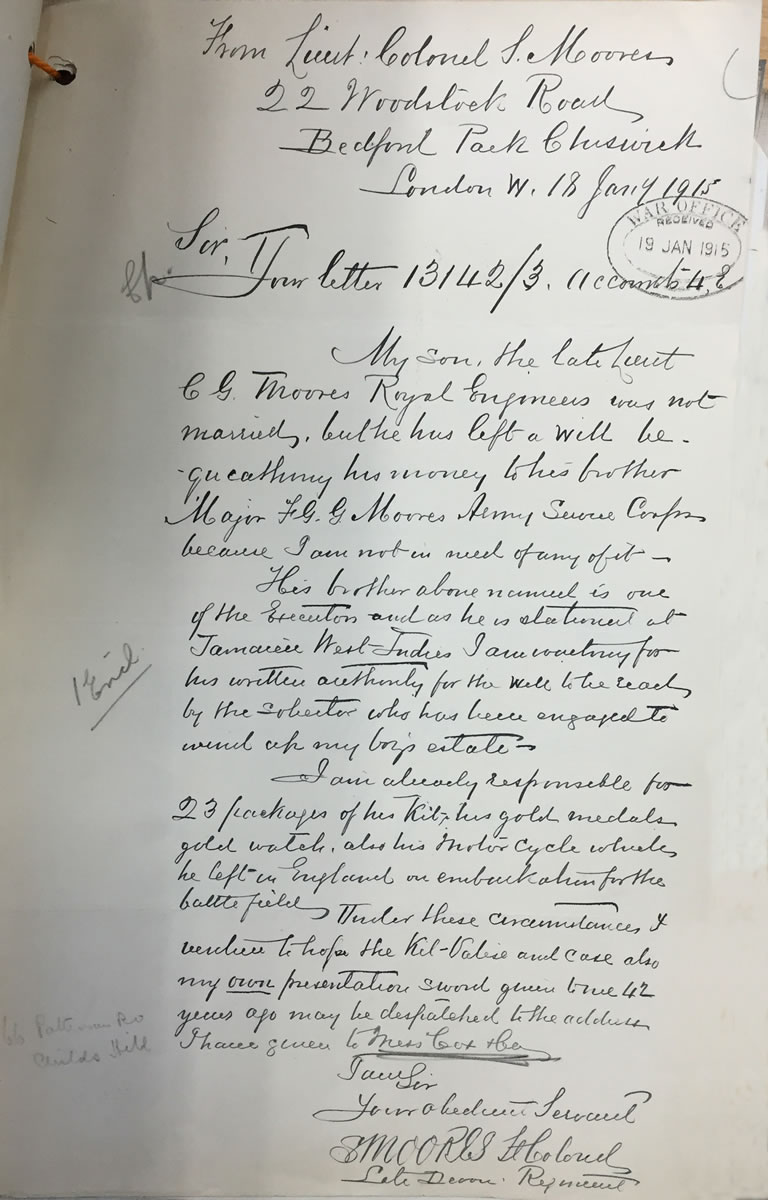 From Lieut: Colonel S. Moores
22 Woodstock Road
Bedford Park Chiswick
London W. 18 Jany 1915
WAR OFFICE
RECEIVED
19 JAN 1915
Sir,
Your letter 13142/3. Accounts 4.
My son, the late Lieut
C G. Moores Royal Engineers was not
married, but he has left a will be-
-queathing his money to his brother
Major F.G. G Moores Army Service Corps
because I am not in need of any of it –
His brother above named is one
of the Executors and as he is stationed at
Jamaica West Indies I am waiting for
his written authority for the will to be read
by the solicitor who has been engaged to
wind up my boy's estate –
I am already responsible for
23 packages of his Kit, his gold medals
gold watch, also his Motor Cycle which
he left in England on embarkation for the
battlefield, Under these circumstances I
venture to hope the Kit-Valise and case also
my own presentation sword given to me 42
years ago may be despatched to the address
I have given to Mess Cox & Co
I am Sir
Your obedient Servant
S MOORES Lt Colonel
Late Devon Regiment
1 Encl.
66
Childs Hill